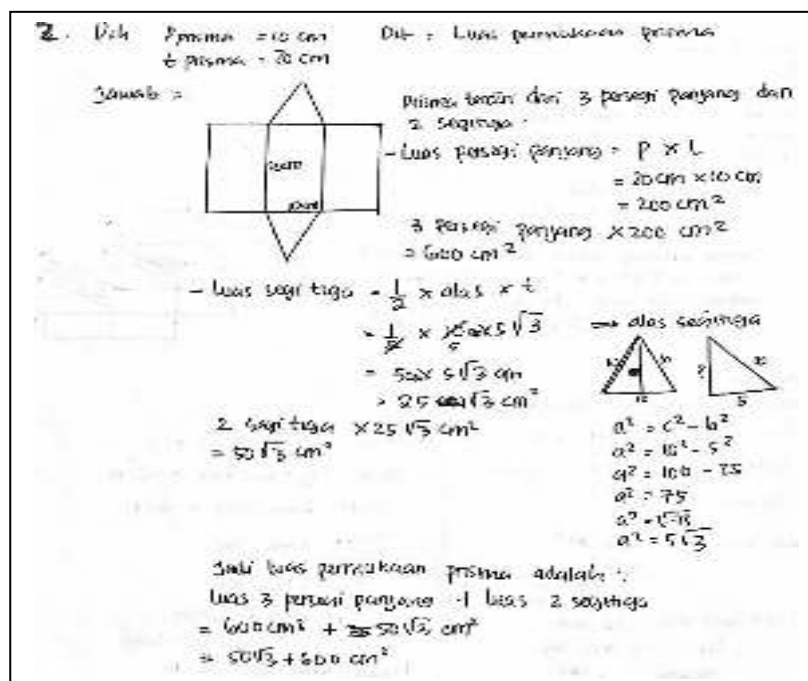 2. Dik Pprisma = 10 cm Dit : Luas permukaan prisma
t prisma = 20 cm
Jawab =
Prisma terdiri dari 3 persegi panjang dan
2 segitiga.
20cm
10cm
- Luas persegi panjang = P x L
= 20 cm x 10 cm
= 200 cm²
3 persegi panjang x 200 cm²
= 600 cm²
- Luas segi tiga = 1/2 x alas x t
5√3
⇒ alas segitiga
= 5 x 5√3 cm
= 25 √3 cm²
2 segi tiga x 25 √3 cm²
= 50 √3 cm²
10
5
a² = c² - b²
a² = 10² - 5²
a² = 100 - 25
a² = 75
a² = √75
a² = 5√3
Jadi luas permukaan prisma adalah :
Luas 3 persegi panjang + luas 2 segitiga
= 600 cm² + 50√3 cm²
= 50√3 + 600 cm²